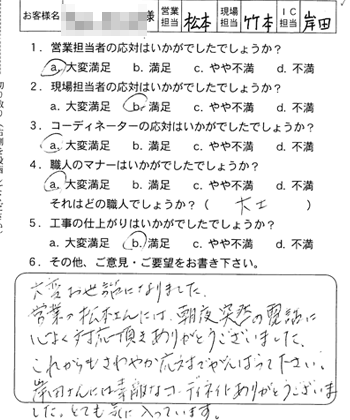 お客様名 様 営業担当 松本 現場担当 竹本 IC担当 岸田
1．営業担当者の応対はいかがでしたでしょうか？
a. 大変満足 b. 満足 c. やや不満 d. 不満
2．現場担当者の応対はいかがでしたでしょうか？
a. 大変満足 b. 満足 c. やや不満 d. 不満
3．コーディネーターの応対はいかがでしたでしょうか？
a. 大変満足 b. 満足 c. やや不満 d. 不満
4．職人のマナーはいかがでしたでしょうか？
a. 大変満足 b. 満足 c. やや不満 d. 不満
それはどの職人でしょうか？（ 大工 ）
5．工事の仕上がりはいかがでしたでしょうか？
a. 大変満足 b. 満足 c. やや不満 d. 不満
6．その他、ご意見・ご要望をお書き下さい。
大変お世話になりました。
営業の松本さんには、朝夜突然の電話に
心よく対応頂きありがとうございました。
これからもさわやか応対でがんばって下さい。
岸田さんには素敵なコーディネイトありがとうございま
した。とても気に入っています。